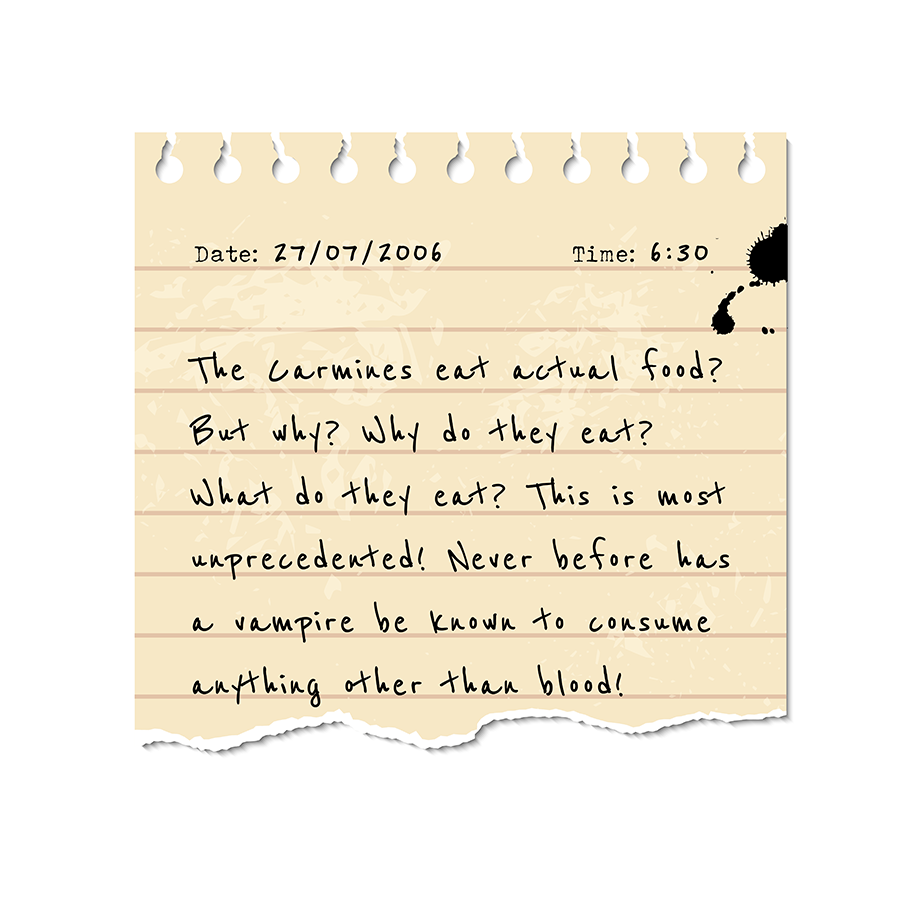 Date: 27/07/2006 Time: 6:30
The Carmines eat actual food?
But why? Why do they eat?
What do they eat? This is most
unprecedented! Never before has
a vampire be known to consume
anything other than blood!